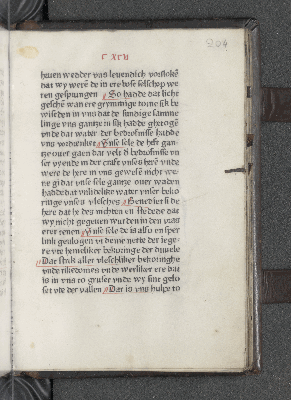 C XCII
204
heuen wedder vns leuendich vorsloke
dat wy weren de in ere bose selschop we
ren gesprungen So hadde dat licht
geschen wan ere grymmige torne sik be
wiseden in vns dat de sundige samme
linge vns gantze in sik hadde ghetogen
vnde dat water der bedrofnisse hadde
vns vordrenket Unse sele de heft gan
tze ouer gaen dat velt d bedrofnisse vn
ser vyende in der crafft vnses here vnde
were de here in vns gewesen nicht we
re gi dat vnse sele gantze ouer waden
hadde dat vnlidelike water vnser beko
ringe vnses vlesches Benediet si de
here dat he des nichten vt stede dat
wy nicht gegeuen wurden in den vras
erer tenen Unse sele de is alse en sper
link gevlogen vt deme nette der iege
re vte hemeliker bekoringe der duuele
Dat strik aller vleschliker bekoringhe
vnde rikedomes vnde werliker ere dat
is in vns to broken vnde wy sint gelo
set vte der vallen Dat is vns hulpe to